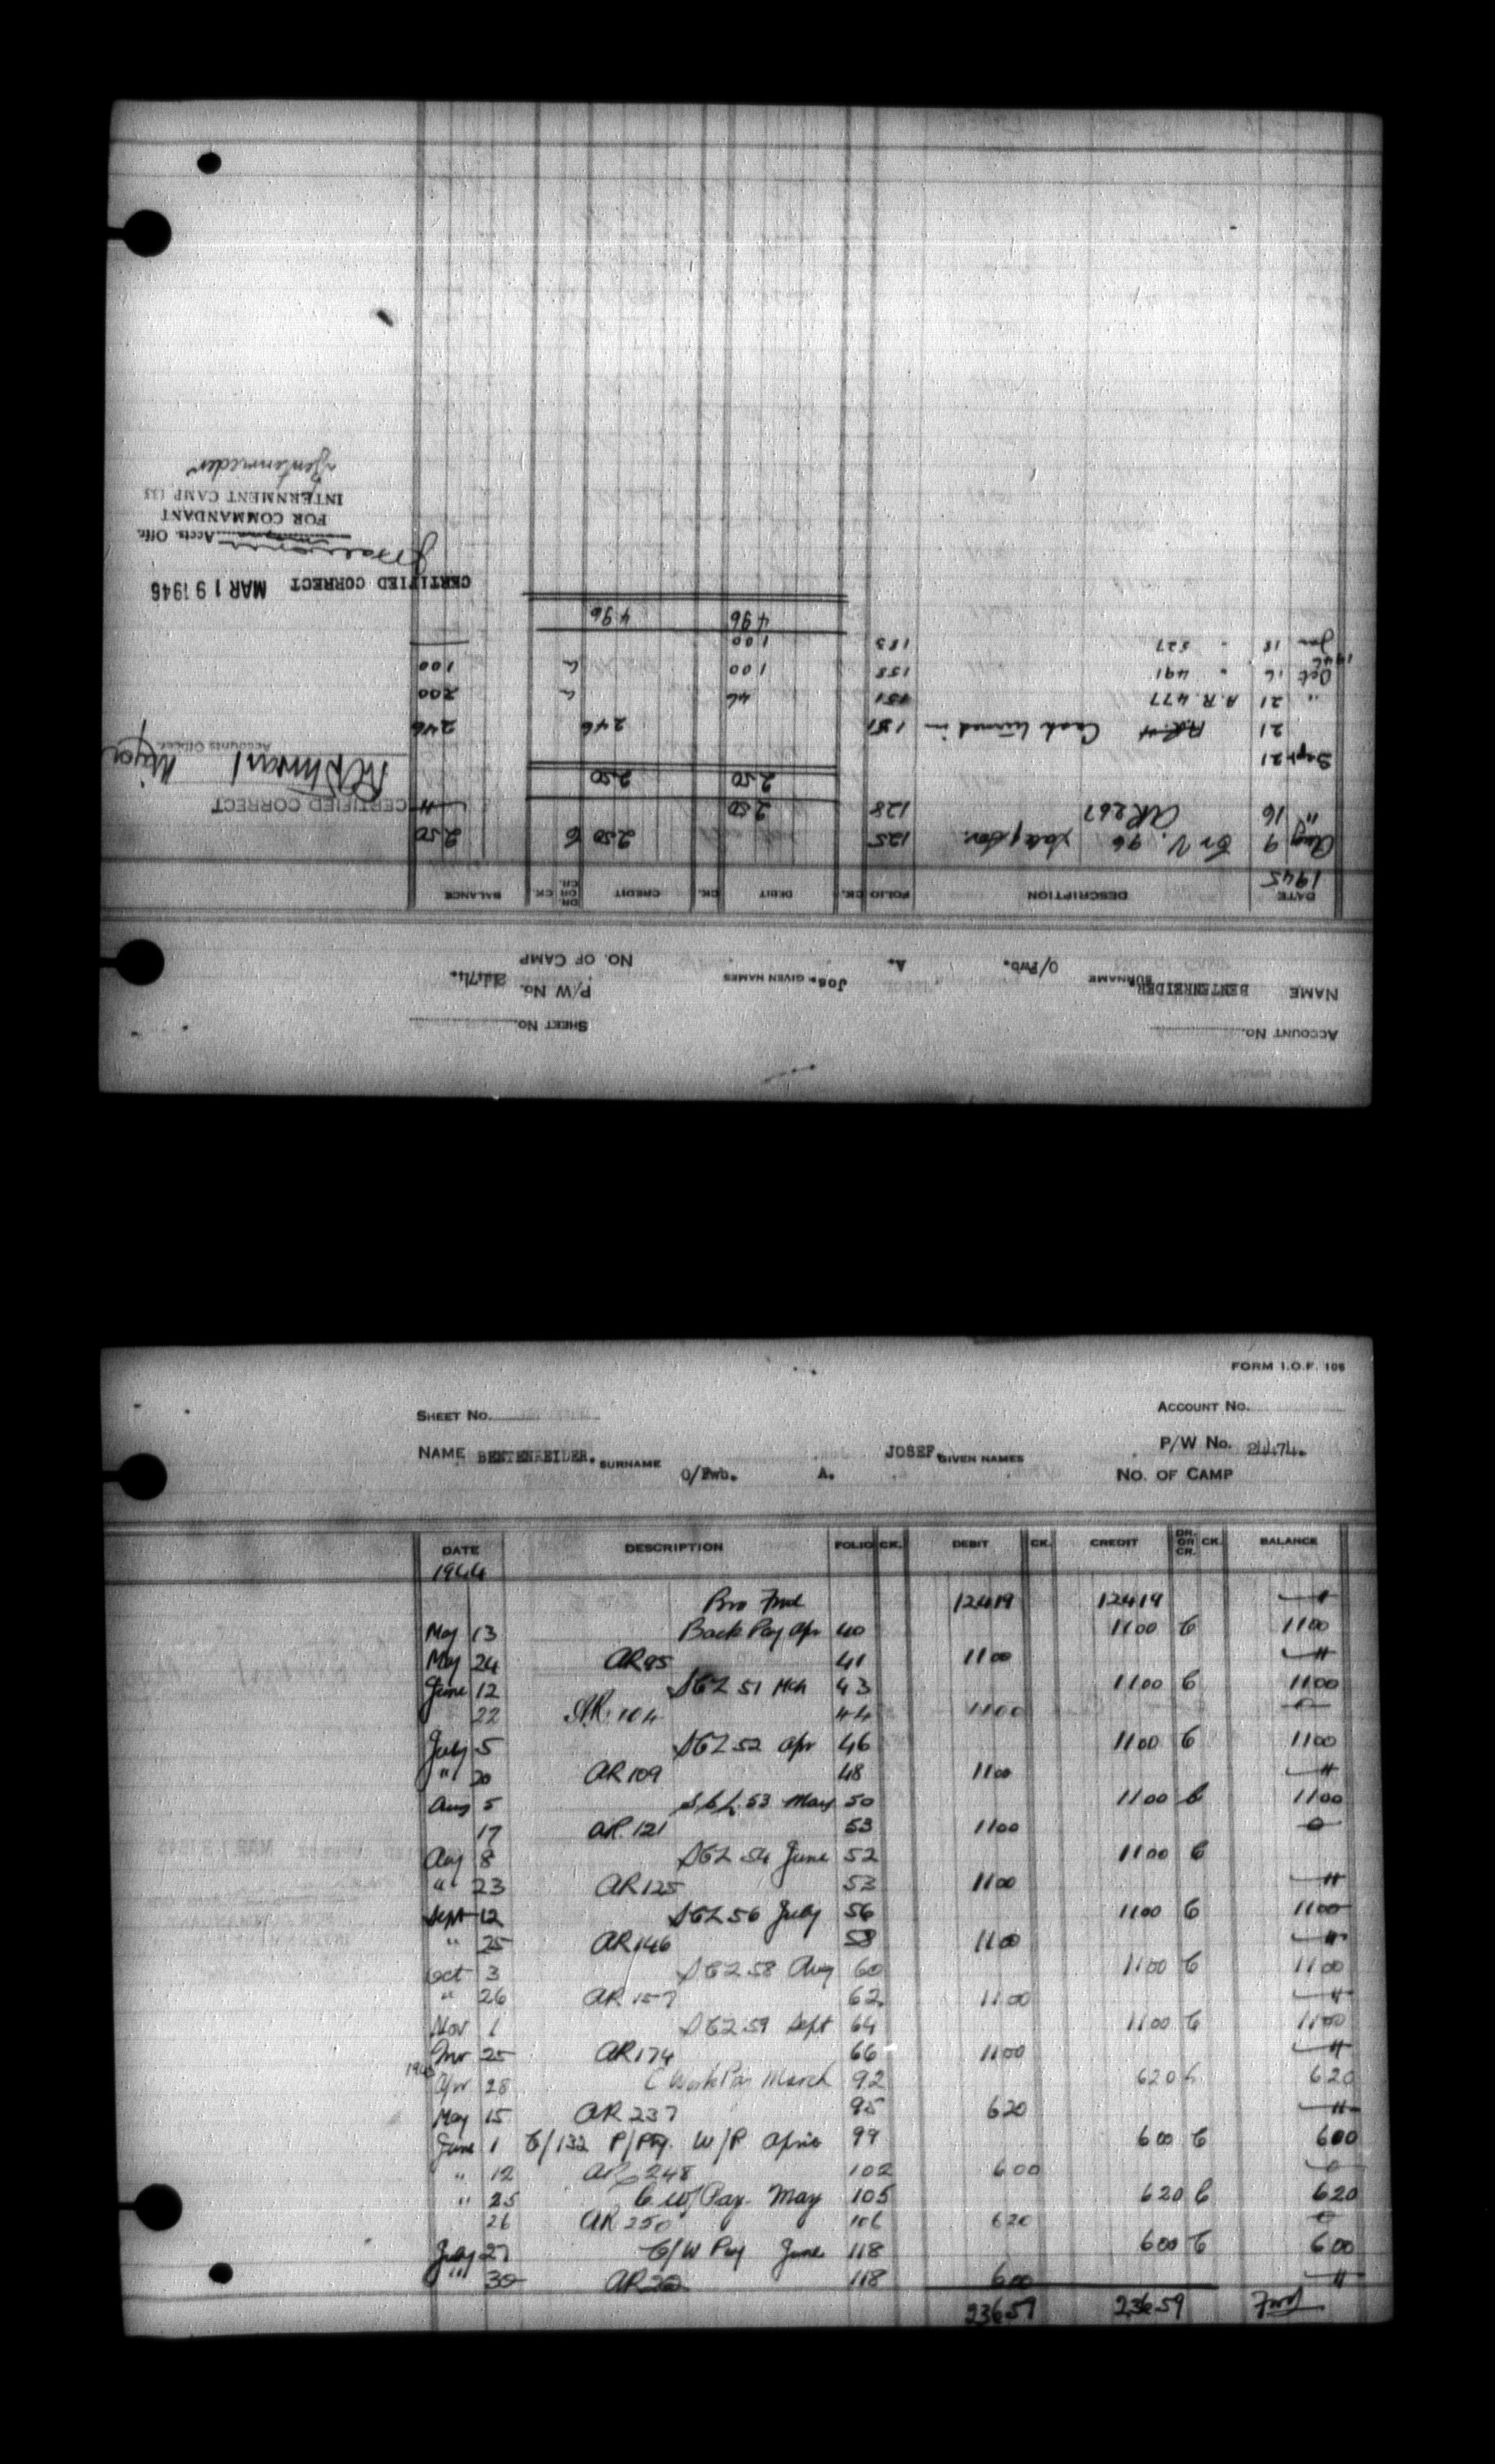 ACCOUNT No.
SHEET No.
NAME BENTENREIDER. SURNAME O/Pwb. A. Jos. GIVEN NAMES P/W No. 2474.
NO. OF CAMP
DATE DESCRIPTION FOLIO CK. DEBIT CK. CREDIT DR. OR CR. CK. BALANCE
1945
Aug 9 Tr V. 96 125 2 50 C 2 50
" 16 AR 267 128 2 50
CERTIFIED CORRECT
2 50 2 50
Major
Accounts Officer
Sept 21
21 Cash turned in 151 2 46 2 46
" 21 A.R. 477 151 46 2 00
Oct 16 " 491 158 1 00 1 00
1946
Jan 18 " 527 183 1 00
4 96 4 96
CERTIFIED CORRECT MAR 19 1946
Accts. Offr.
FOR COMMANDANT
INTERNMENT CAMP 133
Bentenrieder
FORM I.O.F. 106
SHEET No. ACCOUNT No.
NAME BENTENREIDER. SURNAME O/Pwb. A. JOSEF. GIVEN NAMES P/W No. 2474.
NO. OF CAMP
DATE DESCRIPTION FOLIO CK. DEBIT CK. CREDIT DR. OR CR. CK. BALANCE
1944
Bro Fwd 124 19 124 19
May 13 Back Pay Apr 40 11 00 C 11 00
May 24 AR 95 41 11 00
June 12 SCL 51 Mch 43 11 00 C 11 00
22 AR 104 44 11 00 0
July 5 SCL 52 Apr 46 11 00 C 11 00
" 20 AR 109 48 11 00
Aug 5 SCL 53 May 50 11 00 C 11 00
17 AR. 121 53 11 00 0
Aug 8 SCL 54 June 52 11 00 C
" 23 AR 125 53 11 00
Sept 12 SCL 56 July 56 11 00 C 11 00
" 25 AR 146 58 11 00
Oct 3 SCL 58 Aug 60 11 00 C 11 00
" 26 AR 157 62 11 00
Nov 1 SCL 59 Sept 64 11 00 C 11 00
Nov 25 AR 174 66 11 00
1945
Apr 28 C Work Pay March 92 6 20 C 6 20
May 15 AR 237 95 6 20
June 1 C/132 P/Pay. W/P April 99 6 00 C 6 00
" 12 AR 248 102 6 00 0
" 25 C W/Pay May 105 6 20 C 6 20
26 AR 250 106 6 20 0
July 27 C/W Pay June 118 6 00 C 6 00
" 30 AR 118 6 00
236 59 236 59 Fwd